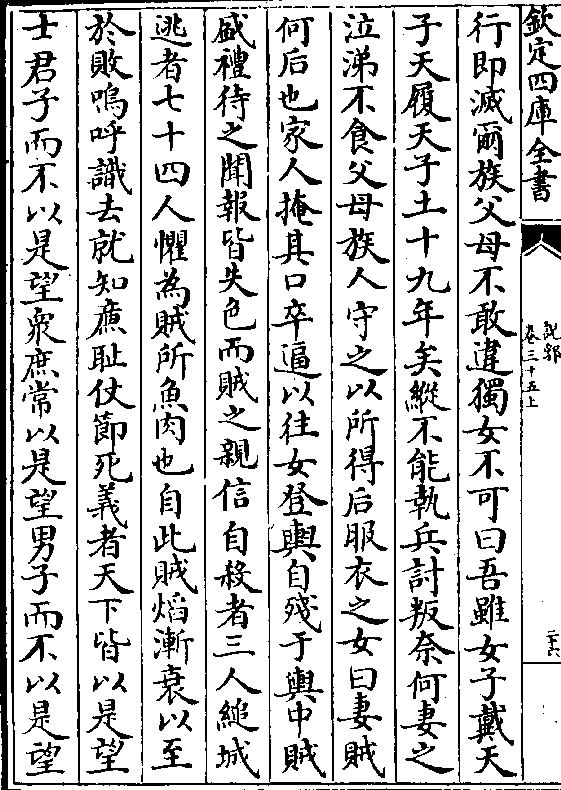 欽定四庫全書
說郛
卷三十五上
二十六
行即滅爾族父母不敢違獨女不可曰吾雖女子戴天
子天履天子土十九年矣縱不能執兵討叛奈何妻之
泣涕不食父母族人守之以所得后服衣之女曰妻賊
何后也家人掩其口卒逼以往女登輿自殘于輿中賊
盛禮待之聞報皆失色而賊之親信自殺者三人縋城
逃者七十四人懼為賊所魚肉也自此賊熖漸衰以至
於敗嗚呼識去就知廉恥仗節死義者天下皆以是望
士君子而不以是望衆庶常以是望男子而不以是望